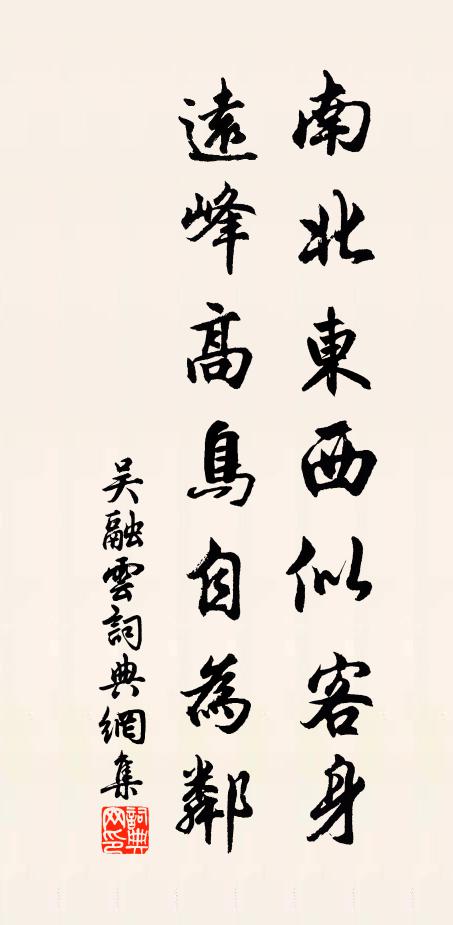 南北東西似客身
遠峰高鳥自為鄰
吴融雲詞典網集
詞典網印